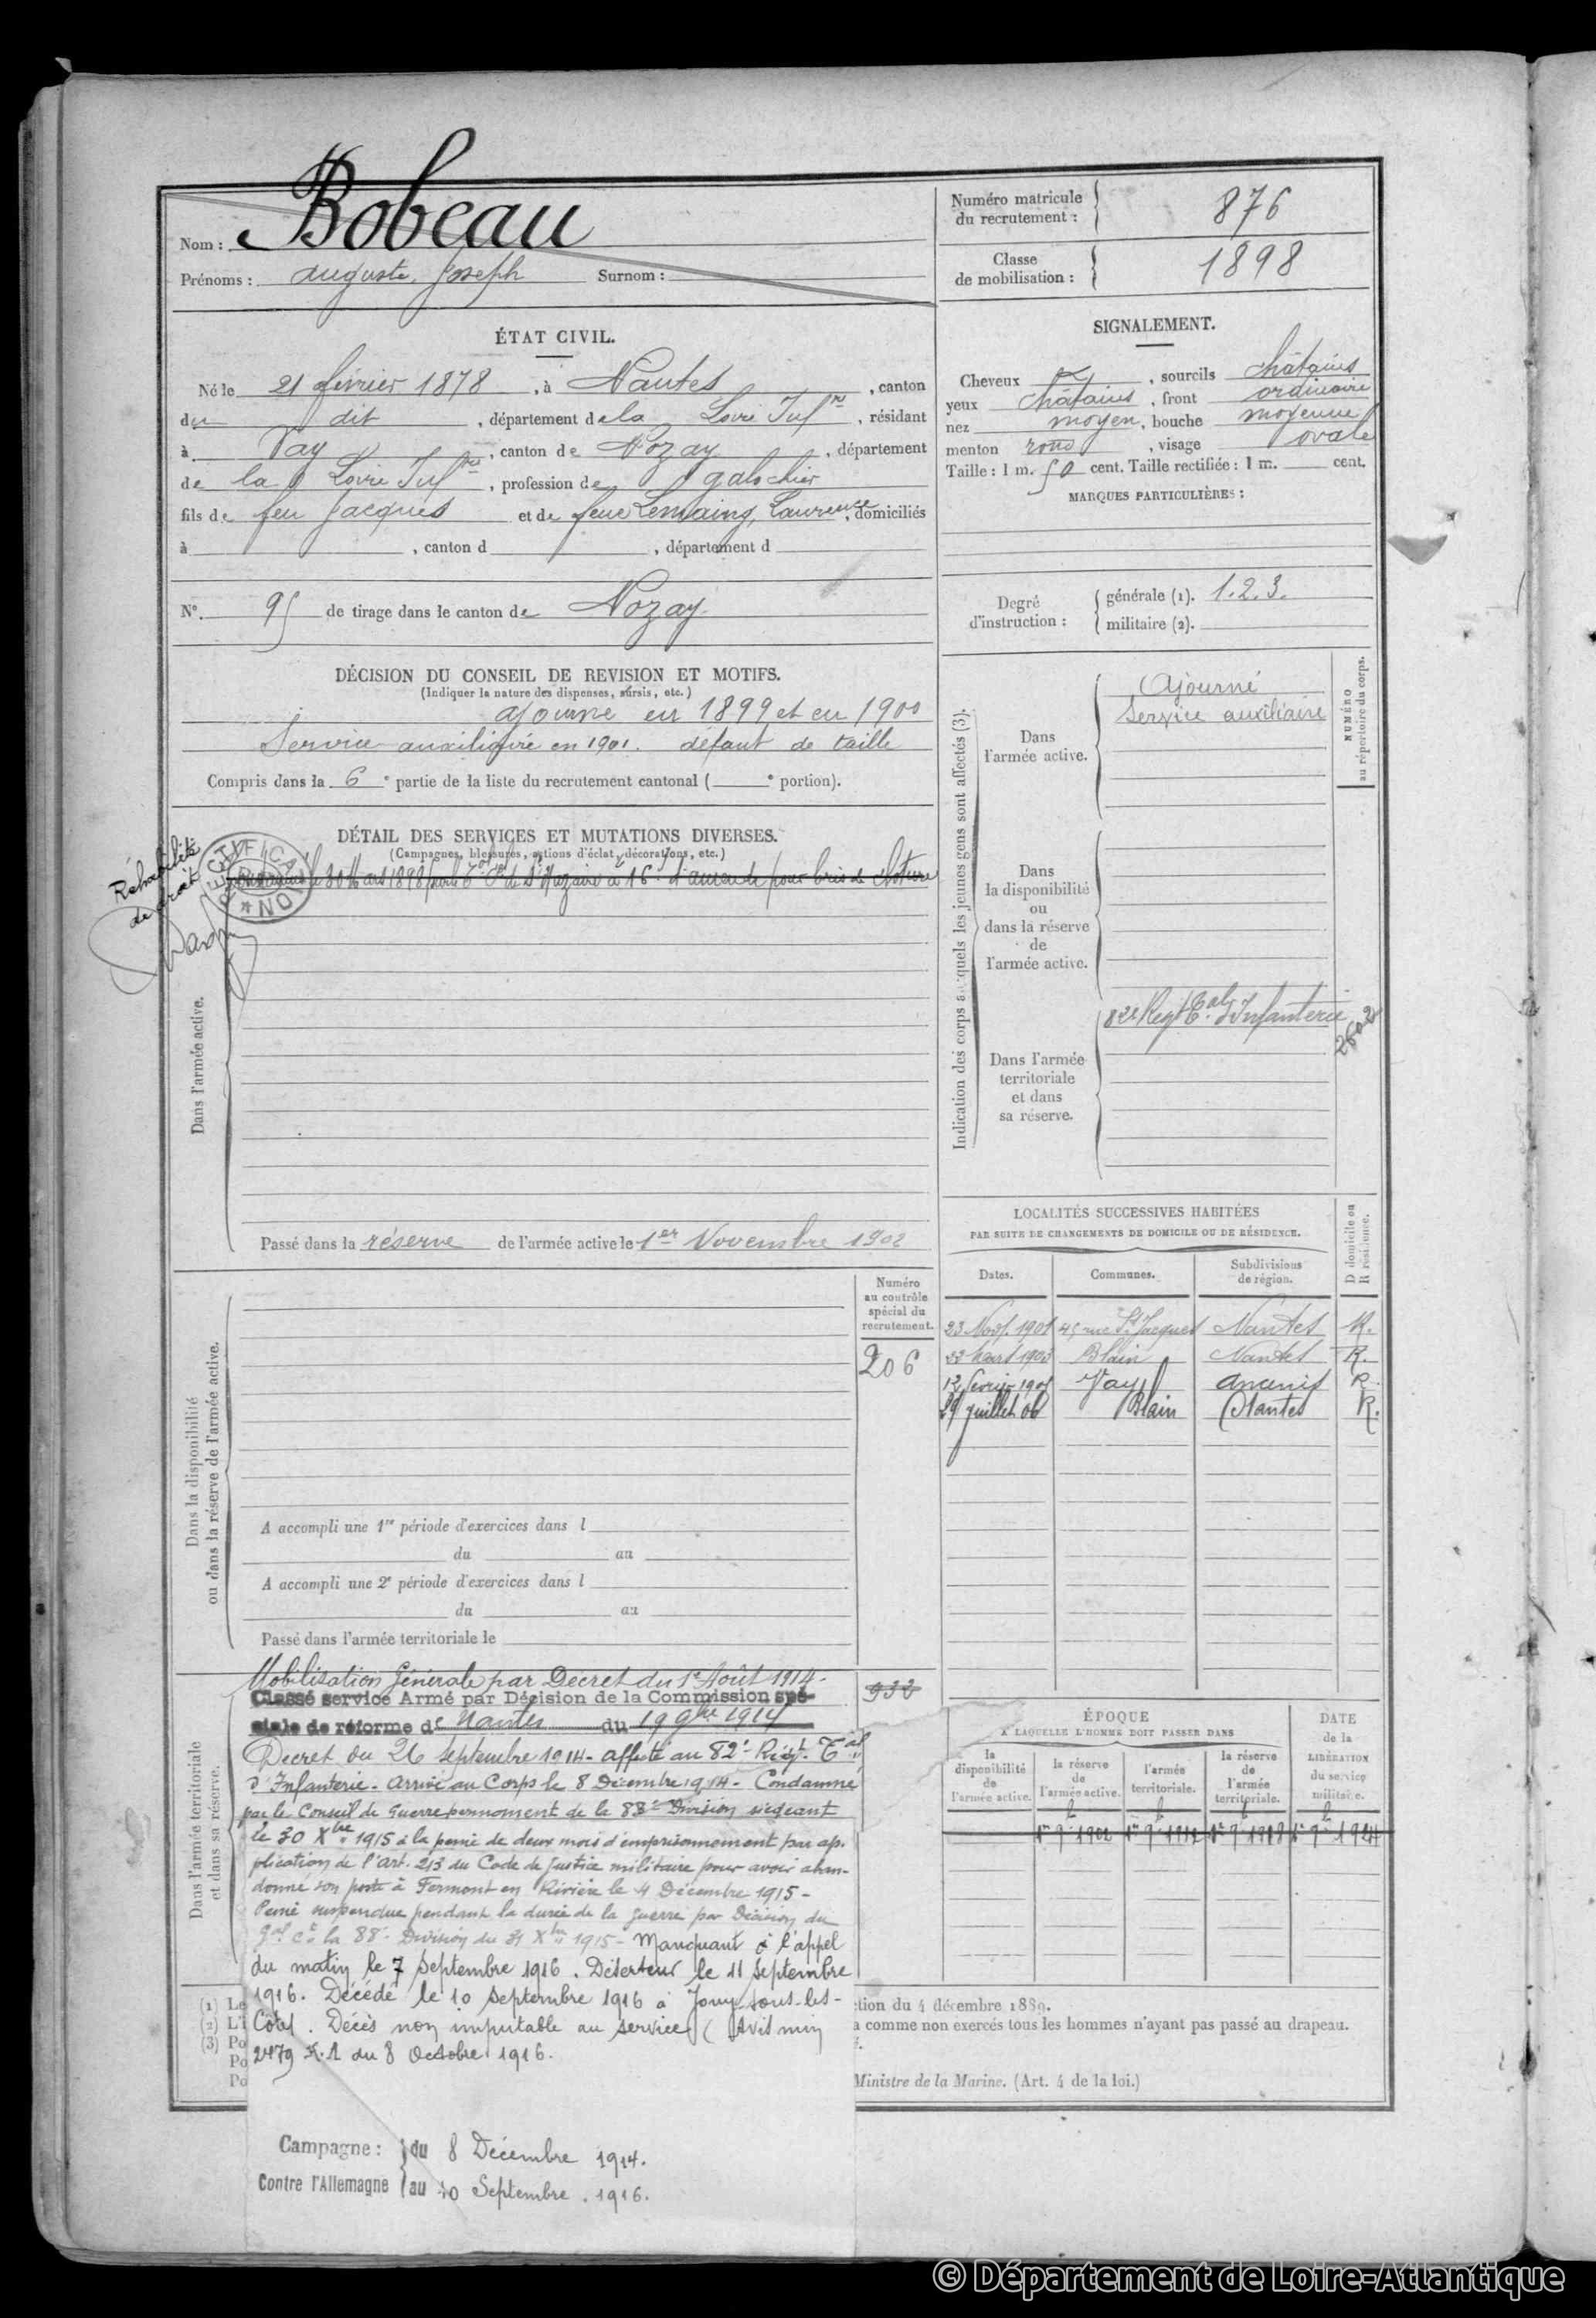 Bobeau
Nom :
Prénoms : Auguste Joseph Surnom :
Numéro matricule du recrutement : 876
Classe de mobilisation : 1898
ÉTAT CIVIL.
Né le 21 février 1878, à Nantes, canton
du dit, département de la Loire Infre, résidant
à Vay, canton de Nozay, département
de la Loire Infre, profession de galochier
fils de feu Jacques et de feue Lemaing, Laurence, domiciliés
à , canton d , département d
N° 95 de tirage dans le canton de Nozay
SIGNALEMENT.
Cheveux , sourcils châtains
yeux châtains, front ordinaire
nez moyen, bouche moyenne
menton rond, visage ovale
Taille : 1 m. 50 cent. Taille rectifiée : 1 m. cent.
MARQUES PARTICULIÈRES :
Degré d'instruction :
générale (1). 1.2.3.
militaire (2).
DÉCISION DU CONSEIL DE REVISION ET MOTIFS.
(Indiquer la nature des dispenses, sursis, etc.)
ajourné en 1899 et en 1900
Service auxiliaire en 1901. défaut de taille
Compris dans la 6e partie de la liste du recrutement cantonal ( e portion).
DÉTAIL DES SERVICES ET MUTATIONS DIVERSES.
(Campagnes, blessures, actions d'éclat, décorations, etc.)
Réhabilité
de droit
RECTIFICATION
le 30 Mars 1898 par le Tal de St Nazaire à 16f d'amende pour bris de clôture
Dans l'armée active.
Passé dans la réserve de l'armée active le 1er Novembre 1902
Indication des corps auxquels les jeunes gens sont affectés (3).
NUMÉRO au répertoire du corps.
Dans l'armée active.
Ajourné
Service auxiliaire
Dans la disponibilité ou dans la réserve de l'armée active.
Dans l'armée territoriale et dans sa réserve.
82e Regt Tal d'Infanterie
LOCALITÉS SUCCESSIVES HABITÉES
PAR SUITE DE CHANGEMENTS DE DOMICILE OU DE RÉSIDENCE.
Dates. Communes. Subdivisions de région. D domicile ou R résidence.
23 Nov. 1901 45 rue St Jacques Nantes R.
22 Mars 1903 Blain Nantes R.
12 Févrie 1905 Vay Ancenis R.
29 juillet 06 Blain Nantes R.
Dans la disponibilité
ou dans la réserve de l'armée active.
Numéro au contrôle spécial du recrutement.
206
A accompli une 1re période d'exercices dans l
du au
A accompli une 2e période d'exercices dans l
du au
Passé dans l'armée territoriale le
Dans l'armée territoriale
et dans sa réserve.
Mobilisation Générale par Décret du 1er Août 1914.
Classé service Armé par Décision de la Commission spé-
ciale de réforme de Nantes du 19 9bre 1914
Décret du 26 septembre 1914 - affecté au 82e Régt. Tal
d'Infanterie - Arrivé au Corps le 8 Décembre 1914 - Condamné
par le Conseil de Guerre permanent de la 88e Division siégeant
le 30 Xbre 1915 à la peine de deux mois d'emprisonnement par ap-
plication de l'Art. 213 du Code de justice militaire pour avoir aban-
donné son poste à Fermont en Rivière le 4 Décembre 1915 -
Peine suspendue pendant la durée de la guerre par Décision du
Gal Ct la 88e Division du 31 Xbre 1915 - Manquant à l'appel
du matin le 7 septembre 1916. Déserteur le 11 septembre
1916. Décédé le 10 septembre 1916 à Jouy-sous-les-
Côtes. Décès non imputable au service (Avis min
2479 K.1 du 8 Octobre 1916.
Campagne : du 8 Décembre 1914.
Contre l'Allemagne au 10 Septembre 1916.
ÉPOQUE
À LAQUELLE L'HOMME DOIT PASSER DANS
la disponibilité de l'armée active.
la réserve de l'armée active.
l'armée territoriale.
la réserve de l'armée territoriale.
DATE de la LIBÉRATION du service militaire.
1er 9bre 1902
1er 9bre 1912
1er 9bre 1918
1er 9bre 1924
(1) Le
(2) L'i
(3) Po
Po
Po
ction du 4 décembre 1889.
a comme non exercés tous les hommes n'ayant pas passé au drapeau.
Ministre de la Marine. (Art. 4 de la loi.)
© Département de Loire-Atlantique